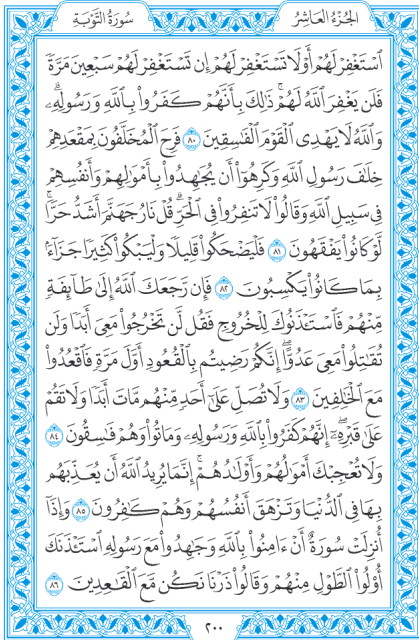 الجُزْءُ العَاشِرُ
سُورَةُ التَّوْبَةِ
ٱسْتَغْفِرْ لَهُمْ أَوْ لَا تَسْتَغْفِرْ لَهُمْ إِن تَسْتَغْفِرْ لَهُمْ سَبْعِينَ مَرَّةً
فَلَن يَغْفِرَ ٱللَّهُ لَهُمْ ۚ ذَٰلِكَ بِأَنَّهُمْ كَفَرُوا۟ بِٱللَّهِ وَرَسُولِهِۦ ۗ
وَٱللَّهُ لَا يَهْدِى ٱلْقَوْمَ ٱلْفَـٰسِقِينَ ٨٠ فَرِحَ ٱلْمُخَلَّفُونَ بِمَقْعَدِهِمْ
خِلَـٰفَ رَسُولِ ٱللَّهِ وَكَرِهُوٓا۟ أَن يُجَـٰهِدُوا۟ بِأَمْوَٰلِهِمْ وَأَنفُسِهِمْ
فِى سَبِيلِ ٱللَّهِ وَقَالُوا۟ لَا تَنفِرُوا۟ فِى ٱلْحَرِّ ۗ قُلْ نَارُ جَهَنَّمَ أَشَدُّ حَرًّا ۚ
لَّوْ كَانُوا۟ يَفْقَهُونَ ٨١ فَلْيَضْحَكُوا۟ قَلِيلًا وَلْيَبْكُوا۟ كَثِيرًا جَزَآءًۢ
بِمَا كَانُوا۟ يَكْسِبُونَ ٨٢ فَإِن رَّجَعَكَ ٱللَّهُ إِلَىٰ طَآئِفَةٍ
مِّنْهُمْ فَٱسْتَـْٔذَنُوكَ لِلْخُرُوجِ فَقُل لَّن تَخْرُجُوا۟ مَعِىَ أَبَدًا وَلَن
تُقَـٰتِلُوا۟ مَعِىَ عَدُوًّا ۖ إِنَّكُمْ رَضِيتُم بِٱلْقُعُودِ أَوَّلَ مَرَّةٍ فَٱقْعُدُوا۟
مَعَ ٱلْخَـٰلِفِينَ ٨٣ وَلَا تُصَلِّ عَلَىٰٓ أَحَدٍ مِّنْهُم مَّاتَ أَبَدًا وَلَا تَقُمْ
عَلَىٰ قَبْرِهِۦٓ ۖ إِنَّهُمْ كَفَرُوا۟ بِٱللَّهِ وَرَسُولِهِۦ وَمَاتُوا۟ وَهُمْ فَـٰسِقُونَ ٨٤
وَلَا تُعْجِبْكَ أَمْوَٰلُهُمْ وَأَوْلَـٰدُهُمْ ۚ إِنَّمَا يُرِيدُ ٱللَّهُ أَن يُعَذِّبَهُم
بِهَا فِى ٱلدُّنْيَا وَتَزْهَقَ أَنفُسُهُمْ وَهُمْ كَـٰفِرُونَ ٨٥ وَإِذَآ
أُنزِلَتْ سُورَةٌ أَنْ ءَامِنُوا۟ بِٱللَّهِ وَجَـٰهِدُوا۟ مَعَ رَسُولِهِ ٱسْتَـْٔذَنَكَ
أُو۟لُوا۟ ٱلطَّوْلِ مِنْهُمْ وَقَالُوا۟ ذَرْنَا نَكُن مَّعَ ٱلْقَـٰعِدِينَ ٨٦
٢٠٠